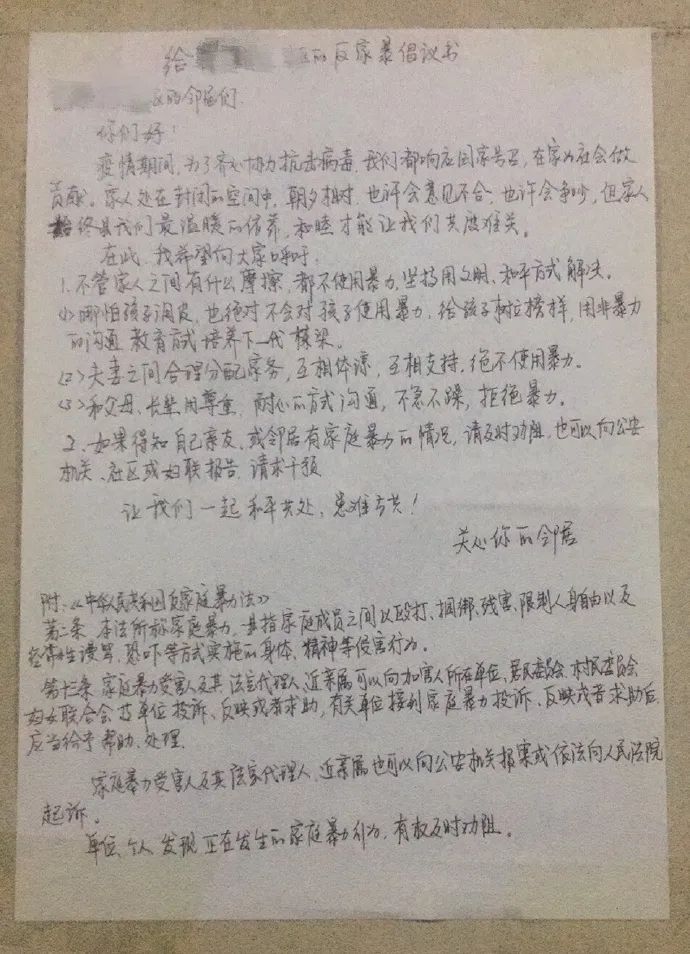 给 的反家暴倡议书
的邻居们：
你们好！
疫情期间，为了齐心协力抗击病毒，我们都响应国家号召，在家为社会做
贡献。家人处在封闭的空间中，朝夕相对，也许会意见不合，也许会争吵，但家人
始终是我们最温暖的倍养，和睦才能让我们共渡难关。
在此，我希望向大家呼吁：
1.不管家人之间有什么摩擦，都不使用暴力，坚持用文明、和平方式解决。
(1)哪怕孩子调皮，也绝对不会对孩子使用暴力，给孩子树立榜样，用非暴力
的沟通教育方式培养下一代栋梁。
(2)夫妻之间合理分配家务，互相体谅，互相支持，绝不使用暴力。
(3)和父母、长辈用尊重、耐心的方式沟通，不急不躁，拒绝暴力。
2.如果得知自己亲友、或邻居有家庭暴力的情况，请及时劝阻，也可以向公安
机关、社区或妇联报告，请求干预
让我们一起和平共处，患难与共！
关心你的邻居
附：《中华人民共和国反家庭暴力法》
第二条 本法所称家庭暴力，是指家庭成员之间以殴打、捆绑、残害、限制人身自由以及
经常性谩骂、恐吓等方式实施的身体、精神等侵害行为。
第十三条 家庭暴力受害人及其法定代理人、近亲属可以向加害人所在单位、居民委员会、村民委员会
妇女联合会等单位投诉、反映或者求助，有关单位接到家庭暴力投诉、反映或者求助后，
应当给予帮助、处理。
家庭暴力受害人及其法定代理人、近亲属也可以向公安机关报案或依法向人民法院
起诉。
单位、个人发现正在发生的家庭暴力行为，有权及时劝阻。